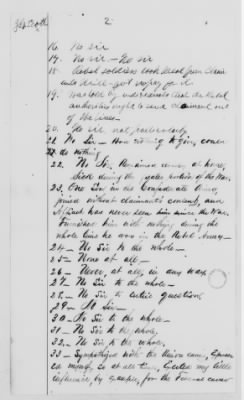 2
16. No sir
17. No sir. — No sir
18. Rebel soldiers took meat from
mills — got no pay for it.
19. Was told by individuals that the Rebel
authorities ought to send claimant out
of the lines —
20. No sir not particularly
21. No Sir — Had nothing to give, could
do nothing.
22. No Sir, Remained home at home,
Sick during the greater portion of the War.
23. One Son in the Confederate Army,
joined without claimant's consent, and
Affiant has never seen him since the War.
Furnished him with nothing during the
whole time he was in the Rebel Army —
24 — No Sir to the whole —
25 — None at all —
26 — Never, at all, in any way.
27 — No Sir to the whole —
28 — No Sir to entire question,
29 — No Sir —
30 — No Sir to the whole —
31 — No Sir to the whole,
32 — No Sir to the whole,
33 — Sympathized with the Union cause,
so at all times, Exerted my little
influence by for the Federal cause